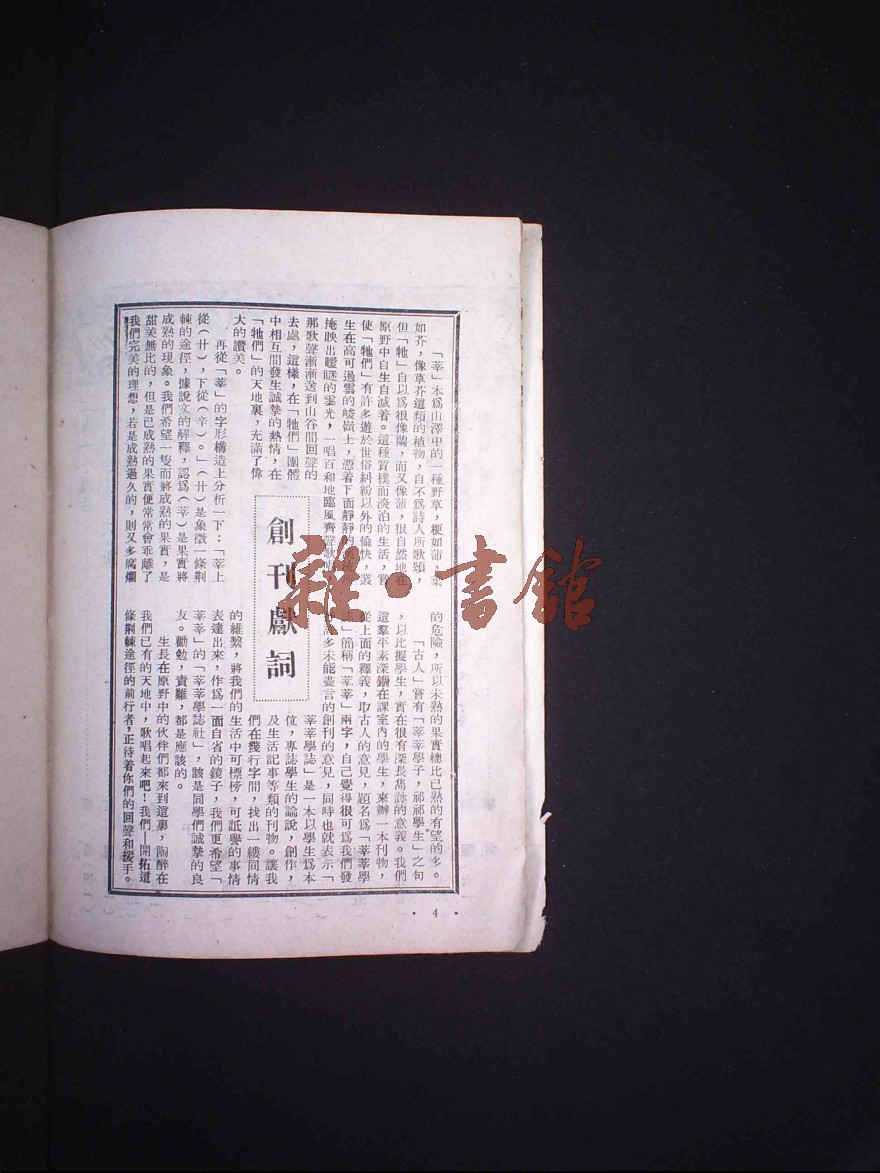 創刊獻詞
「莘」木爲山澤中的一種野草，梗如蒲，葉
如芥，像草芥這類的植物，自不爲詩人所歌頌，
但「牠」自以爲很像蘭，而又像蒲，很自然地在
原野中自生自滅着。這種質樸而淡泊的生活，嘗
使「牠們」有許多遊於世俗糾紛以外的愉快，叢
生在高可過雲的崚嶺上，憑着下面靜靜的
掩映出靉靆的雲光，一唱百和地臨風齊聲歌唱，
那歌聲漸漸送到山谷間回聲的
去處，這樣，在「牠們」團體
中相互間發生誠摯的熱情，在
「牠們」的天地裏，充滿了偉
大的讚美。
再從「莘」的字形構造上分析一下：「莘上
從（卄），下從（辛）。」（卄）是象徵一條荆
棘的途徑，據說文的解釋，認爲（莘）是果實將
成熟的現象。我們希望一隻而將成熟的果實，是
甜美無比的，但是已成熟的果實便常常會乖離了
我們完美的理想，若是成熟過久的，則又多腐爛
的危險，所以未熟的果實總比已熟的有望的多。
「古人」嘗有「莘莘學子，祁祁學生」之句
，以比擬學生，實在很有深長雋詠的意義。我們
這羣平素深錮在課室內的學生，來辦一本刊物，
從上面的釋義，取古人的意見，題名爲「莘莘學
誌」簡稱「莘莘」兩字，自己覺得很可爲我們發
多未能盡言的創刊的意見，同時也就表示「
莘莘學誌」是一本以學生爲本
位，專誌學生的論說，創作，
及生活記事等類的刊物。讓我
們在幾行字間，找出一縷同情
的維繫，將我們的生活中可標榜，可詆譽的事情
表達出來，作爲一面自省的鏡子，我們更希望「
莘莘」的「莘莘學誌社」，該是同學們誠摯的良
友。勸勉，責難，都是應該的。
生長在原野中的伙伴們都來到這裏，陶醉在
我們已有的天地中，歌唱起來吧！我們—開拓這
條荆棘途徑的前行者，正待着你們的回聲和援手。
·4·
雜·書館